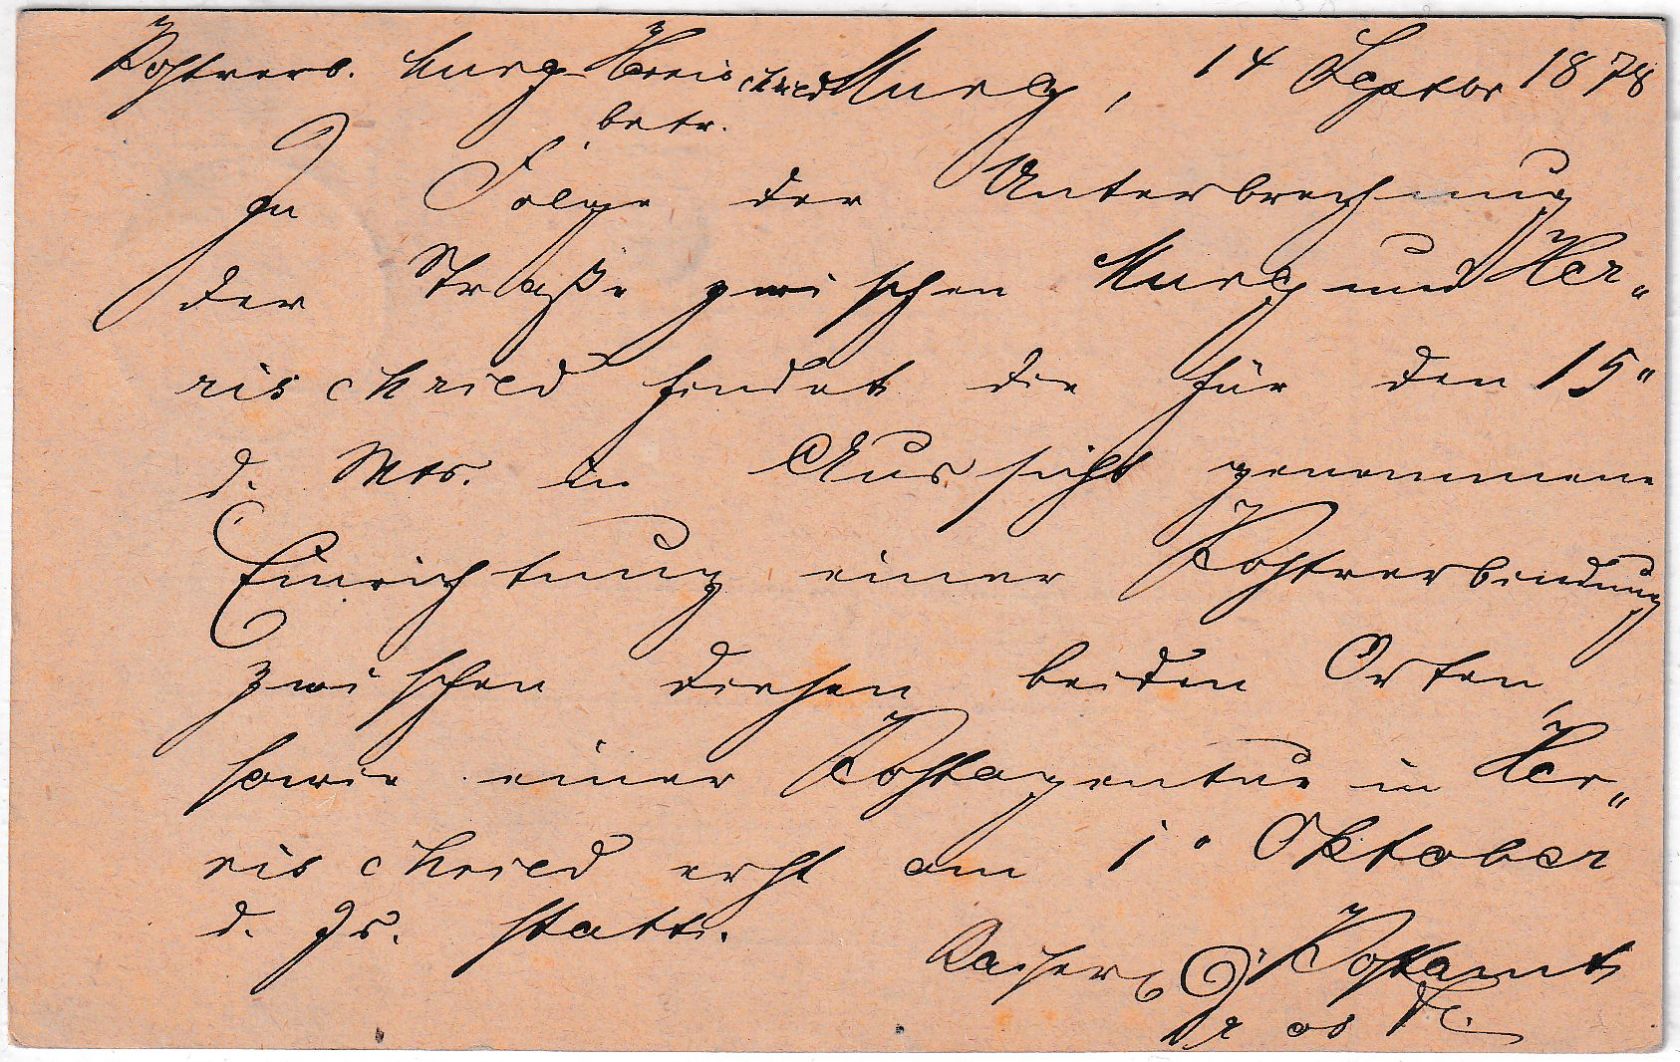 Postverb. Murg-Herrischried Murg, 14 Septbr 1878
betr.
In Folge der Unterbrechung
der Straße zwischen Murg und Her„
rischried findet die für den 15"
d. Mts. in Aussicht genommene
Einrichtung einer Postverbindung
zwischen diesen beiden Orten,
sowie einer Postagentur in Her„
rischried erst am 1" Oktober
d. Js. statt.
Kaiserl. Postamt